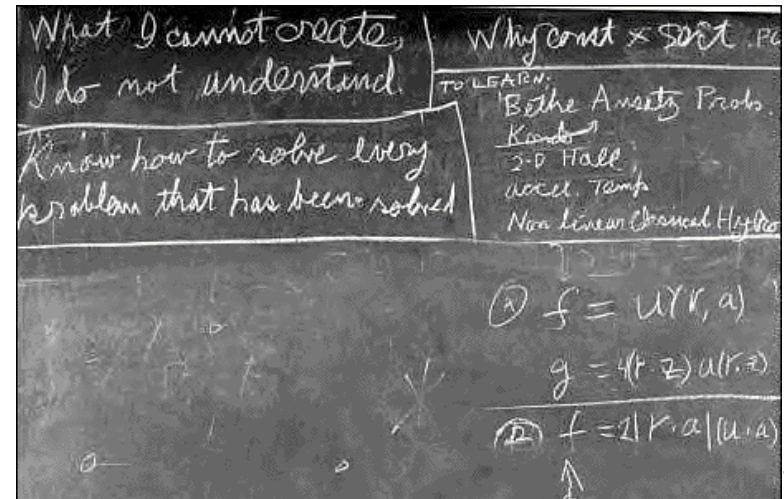 What I cannot create,
I do not understand.
Know how to solve every
problem that has been solved
Why const × sort . PG
TO LEARN:
Bethe Ansatz Probs.
Kondo
2-D Hall
accel. Temp
Non linear Classical Hydro
(A) f = u(r, a)
g = 4(r·z) u(r, z)
f = 2|r·a|(u·a)